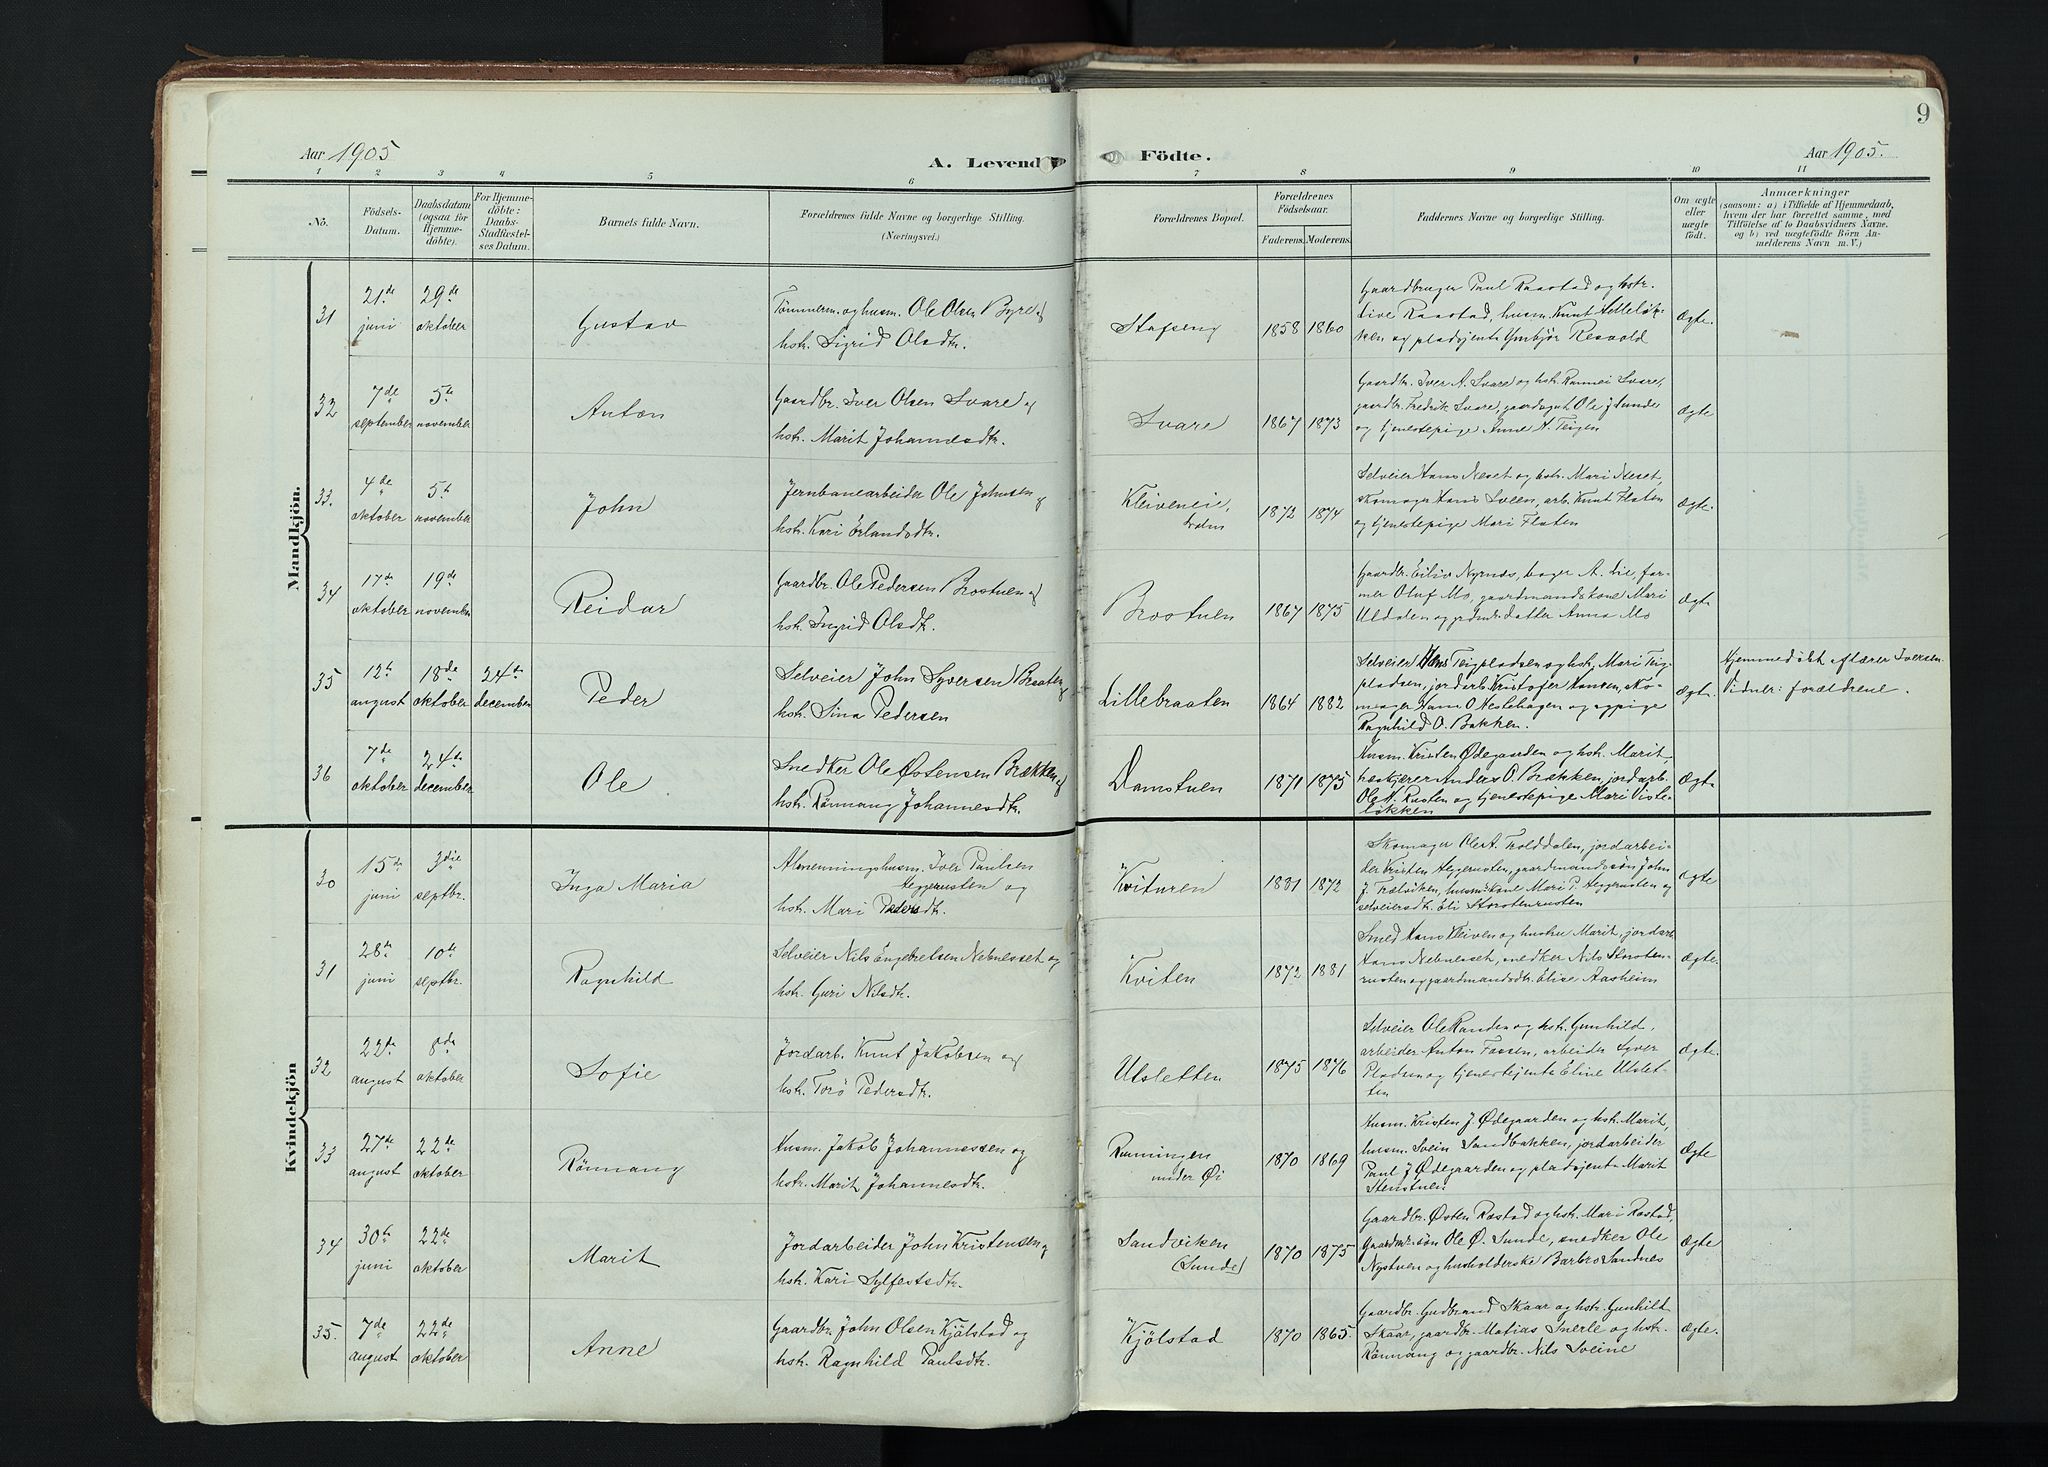 9
Aar 1905
A. Levende
Födte.
Aar 1905.
1 2 3 4 5 6 7 8 9 10 11
No.
Födsels-
Datum.
Daabsdatum
(ogsaa for
Hjemme-
döbte).
For Hjemme-
döbte:
Daabs-
Stadfæstel-
ses Datum.
Barnets fulde Navn.
Forældrenes fulde Navne og borgerlige Stilling.
(Næringsvei.)
Forældrenes Bopæl.
Forældrenes
Födselsaar.
Faderens. Moderens.
Faddernes Navne og borgerlige Stilling.
Om ægte
eller
uægte
födt.
Anmærkninger
(saasom: a) i Tilfælde af Hjemmedaab,
hvem der har forrettet samme, med
Tilföielse af to Daabsvidners Navne,
og b) ved uægtefödte Börn An-
melderens Navn m. V.)
Mandkjön.
31
21de juni
29de oktober
Gustav
Tømmerm. og husm. Ole Olsen Byre og
hstr. Sigrid Olsdtr.
Stafseng
1858 1860
Gaardbruger Paul Raastad og hstr.
Live Raastad, husm. Knut
og pladsjente
Ægte.
32
7de september
5te november
Anton
Gaardbr. Iver Olsen Svare og
hstr. Marit Johannesdtr.
Svare
1867 1873
Gaardbr. Iver A. Svare og hstr. Rannei Svare,
gaardbr. Fredrik Svare, gaardsgut Ole J Sunde
og tjenestepige Anne H. Teigen
Ægte
33.
4de oktober
5te november
John
Jernbanearbeider Ole Johnsen og
hstr. Kari Erlandsdtr.
1872 1874
Selveier Hans Neset og hstr. Mari Neset,
skomager Hans Sveen, arb. Knut Flaten
og tjenestepige Mari Flaten
Ægte.
34
17de oktober
19de november
Reidar
Gaardbr. Ole Pedersen Brostuen og
hstr. Ingrid Olsdtr.
Brostuen
1867 1875
Gaardbr. Eiliv Nyrnæs, bager A. Lie, for-
mer Oluf Mo, gaardmandskone Mari
Uldalen og gdmds datter Anna Mo
Ægte
35
12te august
18de oktober
24de december
Peder
Selveier John Syversen Braaten og
hstr. Sina Pedersen
Lillebraaten
1864 1882
Selveier Hans Teigpladsen og hstr. Mari Teig-
pladsen, jordarb. Kristofer Hansen, sko-
mager Hans O. Neslehagen og
Ragnhild O. Bakken.
Ægte.
Hjemmedøbt af lærer Iversen.
Vidner: forældrene.
36
7de oktober
24de december
Ole
Snedker Ole Østensen Brækken og
hstr. Rønnaug Johannesdtr.
Damstuen
1871 1875
Husm. Kristen Ødegaarden og hstr. Marit,
Anders O. Brækken, jordarb.
Ole H. Rusten og tjenestepige Mari Visle-
løkken
Ægte
Kvindekjön
30
15de juni
3die septbr.
Inga Maria
Almenningshusm. Iver Paulsen
Heggerusten og
hstr. Mari Pedersdtr.
Kvituren
1881 1872
Skomager Ole A. Trolddalen, jordarbei-
der Kristen Heggerusten, gaardmandssøn John
J. Trælviken, husm.kone Mari P. Heggerusten og
selveiersdtr. Eli Storstenrusten
Ægte
31
28de juni
10de septbr.
Ragnhild
Selveier Nils Engebretsen Nebnesset og
hstr. Guri Nilsdtr.
Kviten
1872 1881
Smed Hans Kleiven og hustru Marit, jordarb.
Hans Nebnesset, snedker Nils Storsten-
rusten og gaardmandsdtr. Elise Aasheim
Ægte.
32
22de august
8de oktober
Sofie
Jordarb. Knut Jakobsen og
hstr. Torø Pedersdtr.
Ulsletten
1875 1876
Selveier Ole Randen og hstr. Gunhild,
arbeider Anton Fossen, arbeider Syver
Pladsen og tjenestejente Eline Ulslet-
ten
Ægte.
33
27de august
22de oktober
Rønnaug
Husm. Jakob Johannessen og
hstr. Marit Johannesdtr.
Rønningen
under Øi
1870 1869
Husm. Kristen J. Ødegaarden og hstr. Marit,
husm. Svein Sandbakken, jordarbeider
Paul J Ødegaarden og pladsjente Marit
Stenstuen
Ægte
34
30te juni
22de oktober
Marit
Jordarbeider John Kristensen og
hstr. Kari Sylfestsdtr.
Sandviken
(Sunde)
1870 1875
Gaardbr. Østen Rastad og hstr. Mari Rastad,
Gaardbr.søn Ole Ø. Sunde, snedker Ole
Nystuen og husholderske Barbro Sandnes
Ægte
35.
7de august
22de oktober
Anne
Gaardbr. John Olsen Kjølstad og
hstr. Ragnhild Paulsdtr.
Kjølstad
1870 1865.
Gaardbr. Gudbrand Skaar og hstr. Gunhild
Skaar, gaardbr. Matias Snerle og hstr.
Rønnaug og gaardbr. Nils Sveine
Ægte.